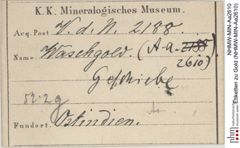 K. K. Mineralogisches Museum.
Acq. Post V. d. N. 2188
Name Waschgold. (A. a. 2188
2610)
Geschiebe
53·2g
Fundort. Ostindien.
NHMW-MIN-Aa2610
Etiketten zu Gold (NHMW-MIN-Aa2610)
nhm